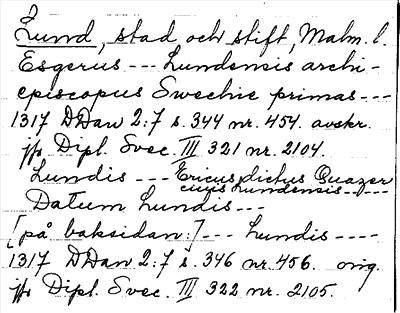 Lund, stad och stift, Malm. l.
Esgerus --- Lundensis archi-
episcopus Swechie primas ---
1317 DDan 2:7 s. 344 nr. 454. avskr.
jfr Dipl. Svec. III 321 nr. 2104.
Lundis --- Ericus dictus Quazer
civis Lundensis ----
Datum Lundis ---
[på baksidan:] --- Lundis ----
1317 DDan 2:7 s. 346 nr. 456. orig.
jfr Dipl. Svec. III 322 nr. 2105.